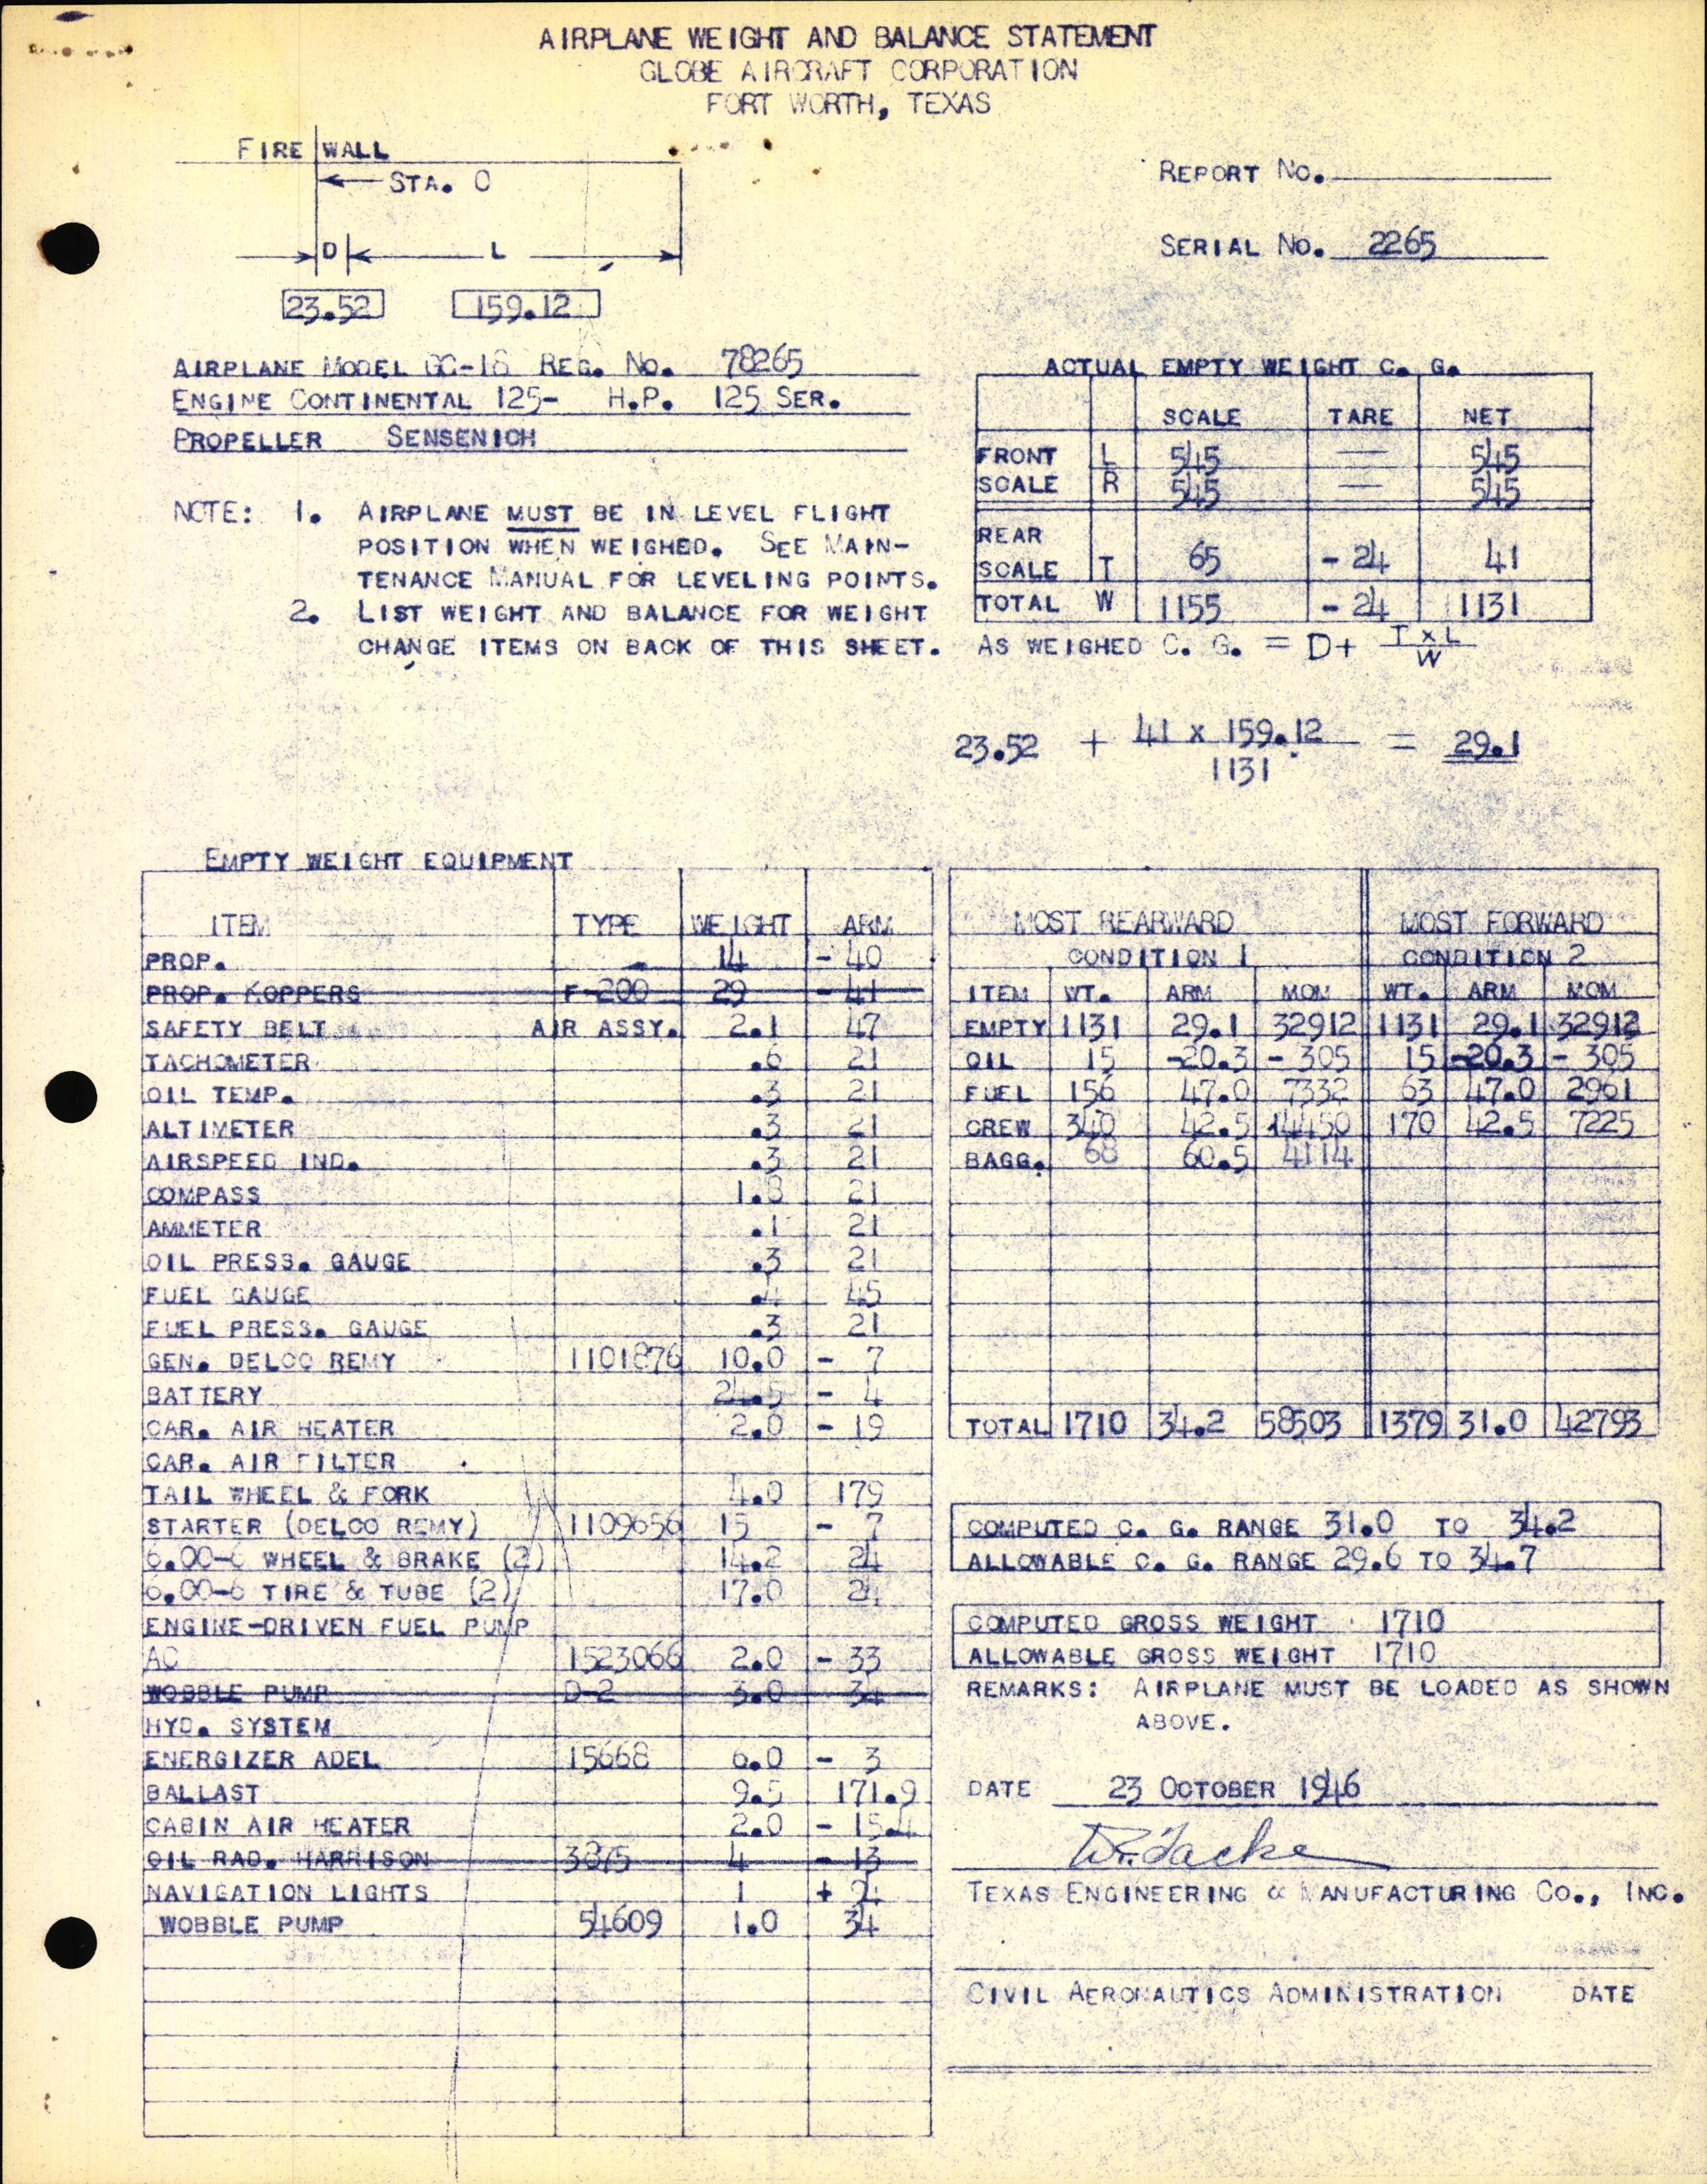 AIRPLANE WEIGHT AND BALANCE STATEMENT
GLOBE AIRCRAFT CORPORATION
FORT WORTH, TEXAS
FIRE WALL
STA. 0
D L
23.52 159.12
REPORT NO.
SERIAL NO. 2265
AIRPLANE MODEL GC-1B REG. NO. 78265
ENGINE CONTINENTAL 125- H.P. 125 SER.
PROPELLER SENSENICH
NOTE: 1. AIRPLANE MUST BE IN LEVEL FLIGHT
POSITION WHEN WEIGHED. SEE MAIN-
TENANCE MANUAL FOR LEVELING POINTS.
2. LIST WEIGHT AND BALANCE FOR WEIGHT
CHANGE ITEMS ON BACK OF THIS SHEET.
ACTUAL EMPTY WEIGHT C. G.
SCALE TARE NET
FRONT L 545 — 545
SCALE R 545 — 545
REAR
SCALE T 65 - 24 41
TOTAL W 1155 - 24 1131
AS WEIGHED C. G. = D+ T x L
W
23.52 + 41 x 159.12 = 29.1
1131
EMPTY WEIGHT EQUIPMENT
ITEM TYPE WEIGHT ARM
PROP. 14 - 40
PROP. KOPPERS F-200 29 - 41
SAFETY BELT AIR ASSY. 2.1 47
TACHOMETER .6 21
OIL TEMP. .3 21
ALTIMETER .3 21
AIRSPEED IND. .3 21
COMPASS 1.8 21
AMMETER .1 21
OIL PRESS. GAUGE .3 21
FUEL GAUGE .4 45
FUEL PRESS. GAUGE .3 21
GEN. DELCO REMY 1101876 10.0 - 7
BATTERY 24.5 - 4
CAR. AIR HEATER 2.0 - 19
CAR. AIR FILTER
TAIL WHEEL & FORK 4.0 179
STARTER (DELCO REMY) 1109656 15 - 7
6.00-6 WHEEL & BRAKE (2) 14.2 24
6.00-6 TIRE & TUBE (2) 17.0 24
ENGINE-DRIVEN FUEL PUMP
AC 1523066 2.0 - 33
WOBBLE PUMP D-2 3.0 34
HYD. SYSTEM
ENERGIZER ADEL 15668 6.0 - 3
BALLAST 9.5 171.9
CABIN AIR HEATER 2.0 - 15.4
OIL RAD. HARRISON 3875 4 - 13
NAVIGATION LIGHTS 1 + 24
WOBBLE PUMP 54609 1.0 34
MOST REARWARD MOST FORWARD
CONDITION 1 CONDITION 2
ITEM WT. ARM MOM WT. ARM MOM
EMPTY 1131 29.1 32912 1131 29.1 32912
OIL 15 -20.3 - 305 15 -20.3 - 305
FUEL 156 47.0 7332 63 47.0 2961
CREW 340 42.5 14450 170 42.5 7225
BAGG. 68 60.5 4114
TOTAL 1710 34.2 58503 1379 31.0 42793
COMPUTED C. G. RANGE 31.0 TO 34.2
ALLOWABLE C. G. RANGE 29.6 TO 34.7
COMPUTED GROSS WEIGHT 1710
ALLOWABLE GROSS WEIGHT 1710
REMARKS: AIRPLANE MUST BE LOADED AS SHOWN
ABOVE.
DATE 23 OCTOBER 1946
TEXAS ENGINEERING & MANUFACTURING CO., INC.
CIVIL AERONAUTICS ADMINISTRATION DATE